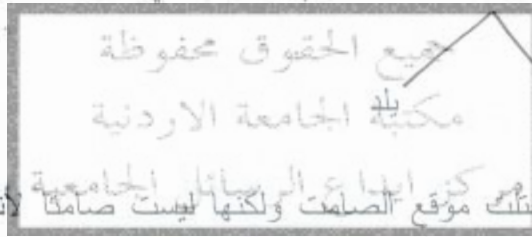 جميع الحقوق محفوظة
بلد
مكتبة الجامعة الاردنية
مركز ايداع الرسائل الجامعية
موقع الصامت ولكنها ليست صامتا